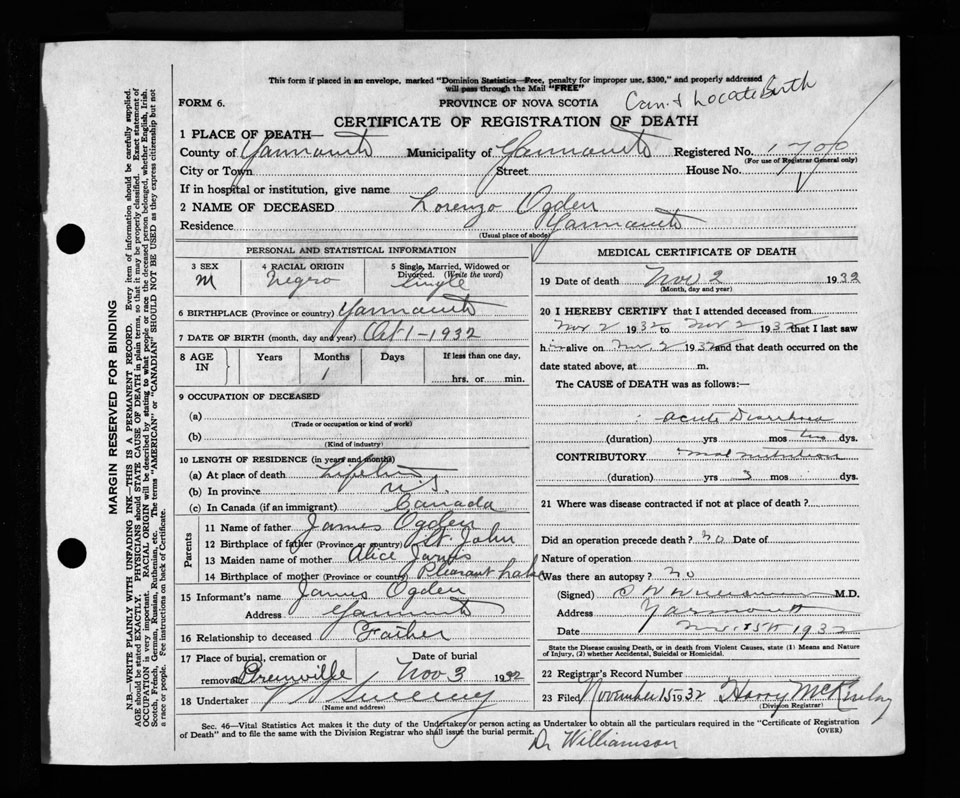 This form if placed in an envelope, marked "Dominion Statistics—Free, penalty for improper use, $300," and properly addressed
will pass through the Mail "FREE"
FORM 6.
PROVINCE OF NOVA SCOTIA
Can't Locate Birth
CERTIFICATE OF REGISTRATION OF DEATH
1 PLACE OF DEATH—
County of Yarmouth Municipality of Yarmouth Registered No.
(For use of Registrar General only)
City or Town Street House No.
If in hospital or institution, give name
2 NAME OF DECEASED Lorenzo Ogden
Residence Yarmouth
(Usual place of abode)
PERSONAL AND STATISTICAL INFORMATION
3 SEX M
4 RACIAL ORIGIN Negro
5 Single, Married, Widowed or Divorced. (Write the word) Single
6 BIRTHPLACE (Province or country) Yarmouth
7 DATE OF BIRTH (month, day and year) Oct 1-1932
8 AGE IN Years Months Days If less than one day,
1 hrs. or min.
9 OCCUPATION OF DECEASED
(a)
(Trade or occupation or kind of work)
(b)
(Kind of industry)
10 LENGTH OF RESIDENCE (in years and months)
(a) At place of death Lifetime
(b) In province N.S.
(c) In Canada (if an immigrant) Canada
Parents
11 Name of father James Ogden
12 Birthplace of father (Province or country) St. John
13 Maiden name of mother Alice
14 Birthplace of mother (Province or country) Pleasant Lake
15 Informant's name James Ogden
Address Yarmouth
16 Relationship to deceased Father
17 Place of burial, cremation or removal Greenville
Date of burial Nov 3 1932
18 Undertaker Sweeney
(Name and address)
MEDICAL CERTIFICATE OF DEATH
19 Date of death Nov 2 1932
(Month, day and year)
20 I HEREBY CERTIFY that I attended deceased from
Nov 2 1932 to Nov 2 1932 that I last saw
him alive on Nov. 2 1932 and that death occurred on the
date stated above, at m.
The CAUSE of DEATH was as follows:—
Acute Diarrhoea
(duration) yrs mos two dys.
CONTRIBUTORY Mal nutrition
(duration) yrs 3 mos dys.
21 Where was disease contracted if not at place of death?
Did an operation precede death? no Date of
Nature of operation
Was there an autopsy? no
(Signed) Williamson M.D.
Address Yarmouth
Date Nov. 15th 1932
State the Disease causing Death, or in death from Violent Causes, state (1) Means and Nature of Injury, (2) whether Accidental, Suicidal or Homicidal.
22 Registrar's Record Number
23 Filed November 15 1932 Harry McKinlay
(Division Registrar)
Sec. 46—Vital Statistics Act makes it the duty of the Undertaker or person acting as Undertaker to obtain all the particulars required in the "Certificate of Registration
of Death" and to file the same with the Division Registrar who shall issue the burial permit.
(OVER)
Dr Williamson
MARGIN RESERVED FOR BINDING
N.B.—WRITE PLAINLY WITH UNFADING INK—THIS IS A PERMANENT RECORD. Every item of information should be carefully supplied.
AGE should be stated EXACTLY. PHYSICIANS should STATE CAUSE OF DEATH in plain terms, so that it may be properly classified. Exact statement of
OCCUPATION is very important. RACIAL ORIGIN will be described by stating to what people or race the deceased person belonged, whether English, Irish,
Scotch, French, German, Russian, Ruthenian, etc. The terms "AMERICAN" or "CANADIAN" SHOULD NOT BE USED as they express citizenship but not
a race or people. See instructions on back of Certificate.